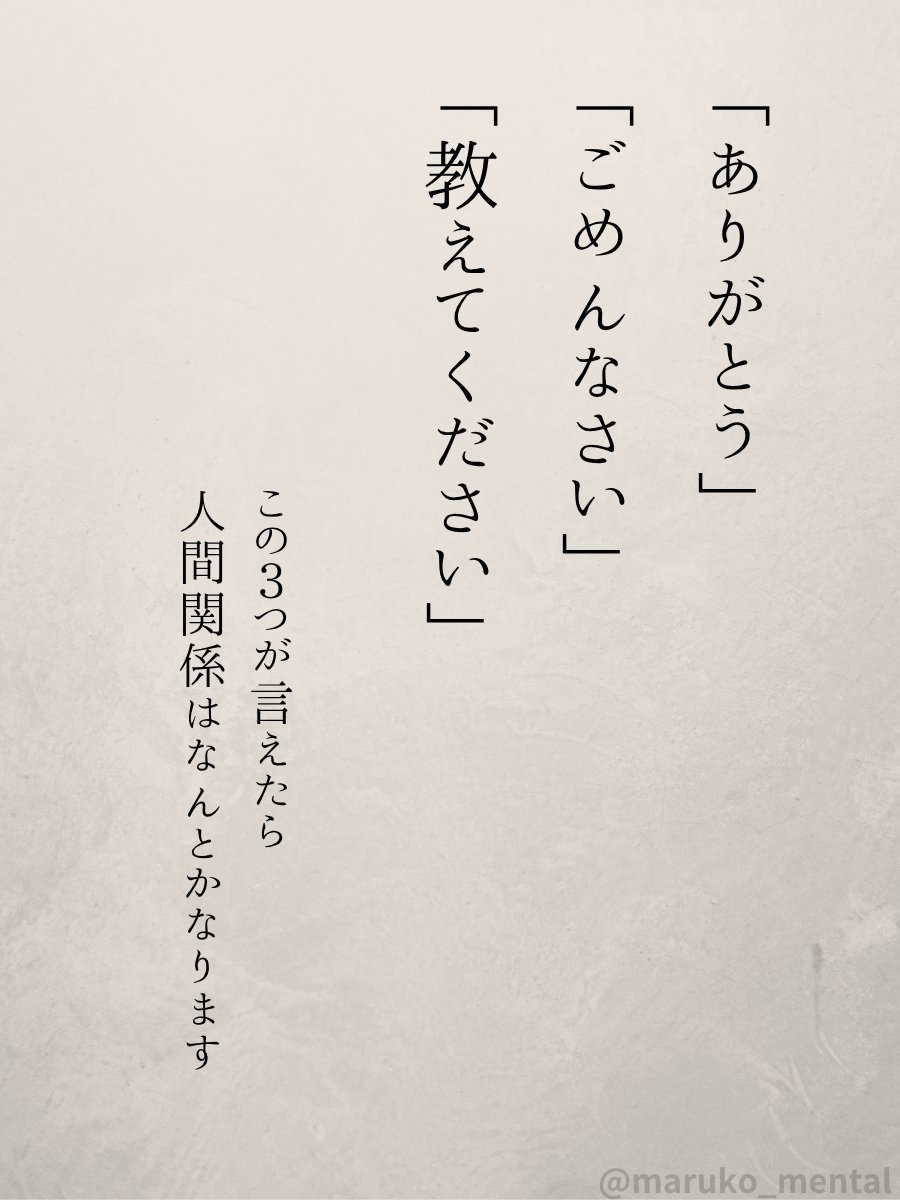 「ありがとう」
「ごめんなさい」
「教えてください」
この3つが言えたら
人間関係はなんとかなります
@maruko_mental